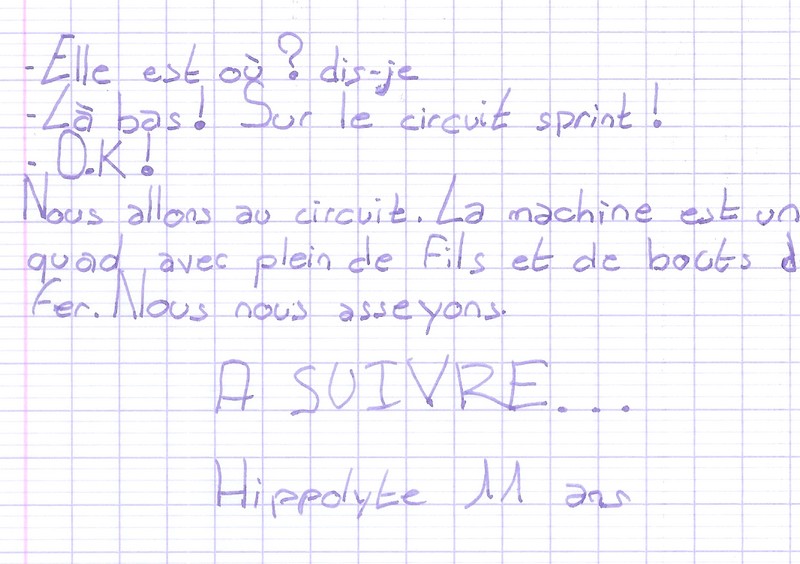 -Elle est où ? dis-je
-Là bas! Sur le circuit sprint !
- O.K !
Nous allons au circuit. La machine est un
quad avec plein de fils et de bouts d
fer. Nous nous asseyons.
A SUIVRE...
Hippolyte 11 ans